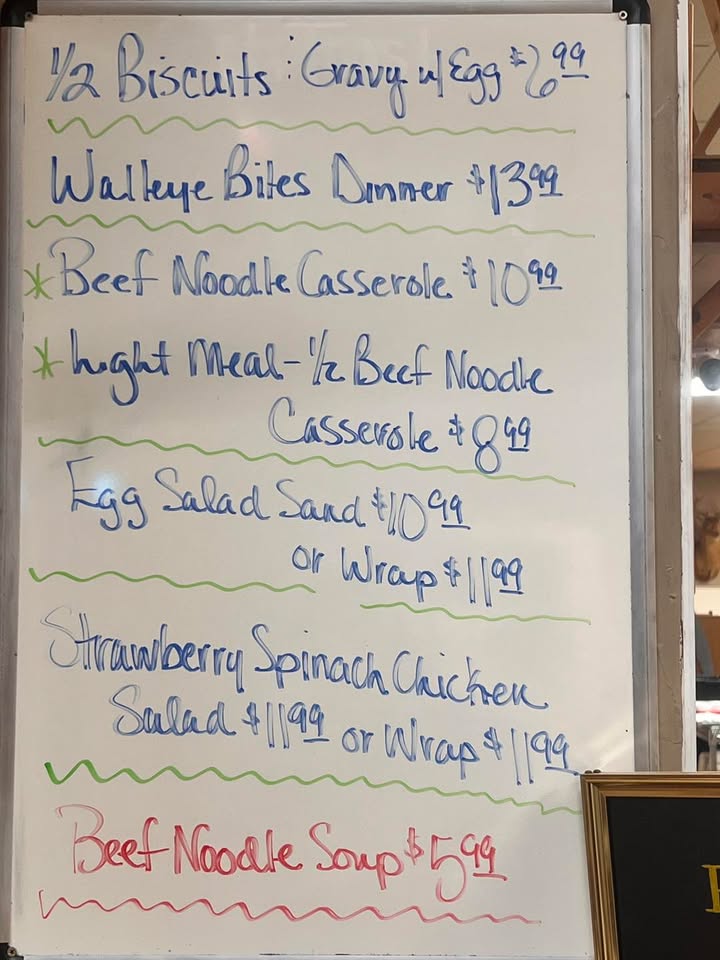 1/2 Biscuits : Gravy w/ Egg $6.99
Walleye Bites Dinner $13.99
* Beef Noodle Casserole $10.99
* Light Meal - 1/2 Beef Noodle
Casserole $8.99
Egg Salad Sand $10.99
or Wrap $11.99
Strawberry Spinach Chicken
Salad $11.99 or Wrap $11.99
Beef Noodle Soup $5.99